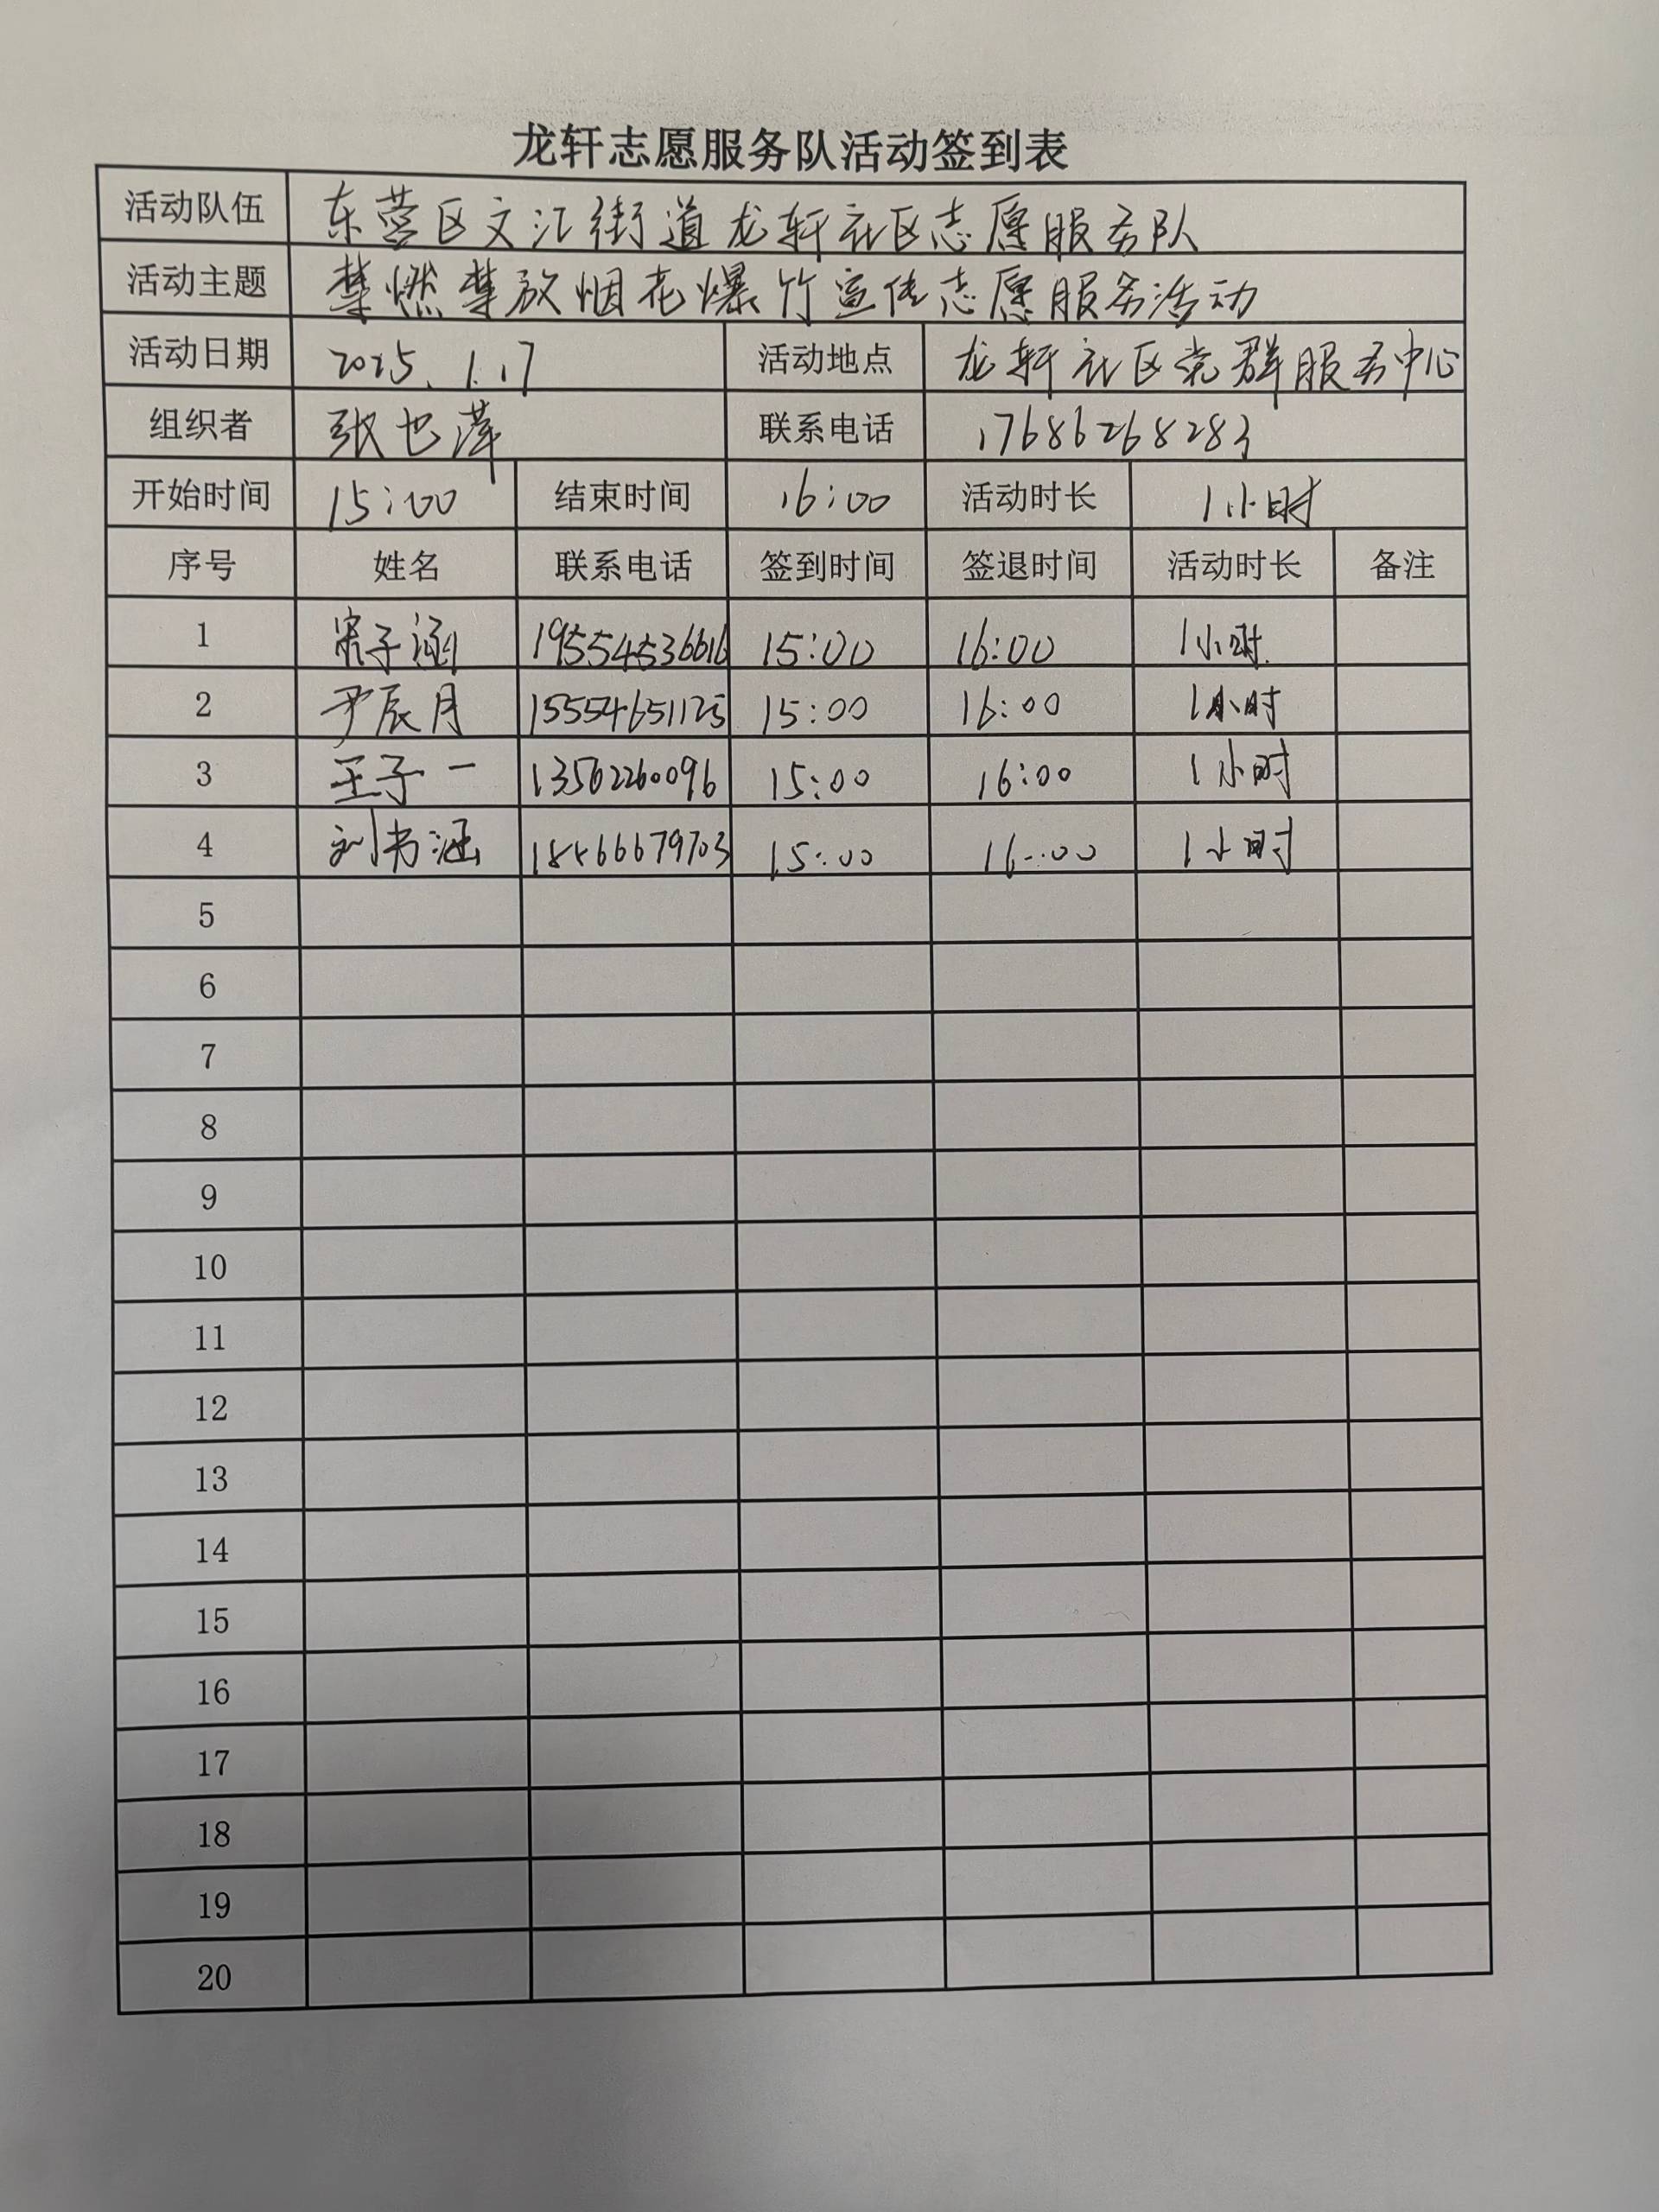 龙轩志愿服务队活动签到表
活动队伍 东营区文汇街道龙轩社区志愿服务队
活动主题 禁燃禁放烟花爆竹宣传志愿服务活动
活动日期 2025.1.17 活动地点 龙轩社区党群服务中心
组织者 张也萍 联系电话 17686268283
开始时间 15:00 结束时间 16:00 活动时长 1小时
序号 姓名 联系电话 签到时间 签退时间 活动时长 备注
1 子涵 19554536616 15:00 16:00 1小时.
2 尹辰月 15554651125 15:00 16:00 1小时
3 王子一 13562260096 15:00 16:00 1小时
4 刘书涵 15:00 16:00 1小时
5
6
7
8
9
10
11
12
13
14
15
16
17
18
19
20